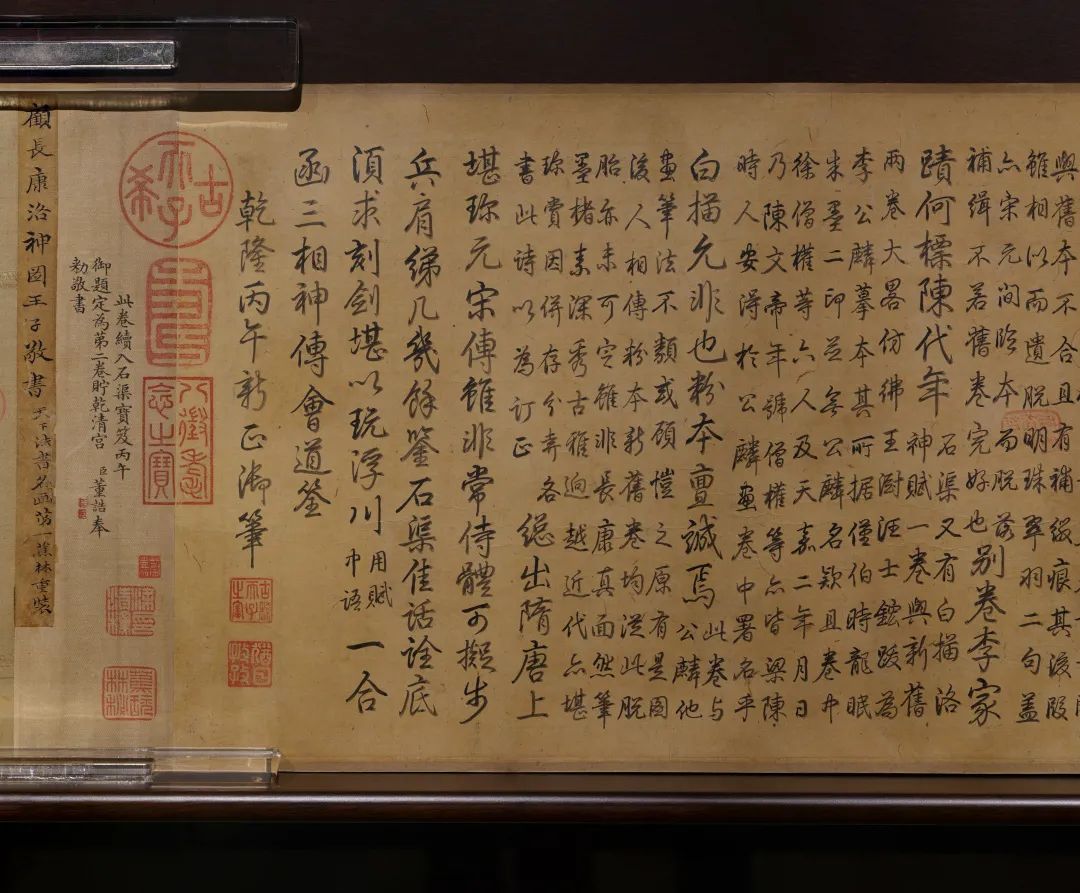 與舊本不合且有補綴痕其後段
雖相似而遺脫明珠翠羽二句蓋
亦宋元間臨本而脫落
補緝不若舊卷完好也
別卷李家
蹟何標陳代年
石渠又有白描洛
神賦一卷與新舊
兩卷大畧仿彿王澍汪士鋐跋為
李公麟摹本其所據僧伯時龍眠
朱墨二印並無公麟名欵且卷中
徐僧權等六人及天嘉二年月日
乃陳文帝年號僧權等亦皆梁陳
時人安得於公麟畫卷中署名乎
白描允非也粉本亶誠焉
此卷與
公麟他
畫筆法不類或顧愷之原有是圖
後人相傳粉本新舊卷均從此脫
胎亦未可定雖非長康真面然筆
墨楮素深秀古雅迥越近代亦堪
珍賞因併存分弆各
書此詩以為訂正
總出隋唐上
堪珍元宋傳雖非常侍體可擬步
兵肩綈几幾餘鑒石渠佳話詮底
須求刻劍堪以玩浮川
用賦
中語
一合
函三相神傳會道筌
乾隆丙午新正御筆
古希天子
八徵耄念之寶
此卷續入石渠寶笈丙午
御題定為第二卷貯乾清宮 臣董誥奉
勅敬書
顧長康洛神圖王子敬書 天下法書名畫第一蕉林重裝